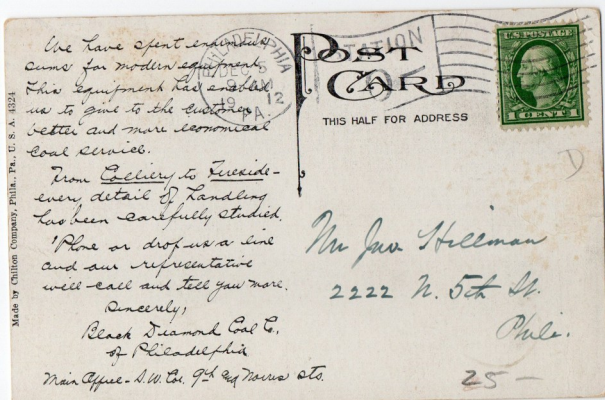 We have spent enormous
sums for modern equipment.
This equipment has enabled
us to give to the customer
better and more economical
coal service.
From Colliery to Fireside -
every detail of handling
has been carefully studied.
'Phone or drop us a line
and our representative
will call and tell you more.
Sincerely,
Black Diamond Coal Co.
of Philadelphia
Main Office - S.W. Cor. 9th and Norris sts.
Made by Chilton Company, Phila., Pa., U. S. A. 4324
PHILADELPHIA
DEC 5
19 12
PA.
STATION
POST
CARD
THIS HALF FOR ADDRESS
U.S. POSTAGE
1 CENT 1
D
Mr Jno Hillman
2222 N. 5th St.
Phili.
25 -